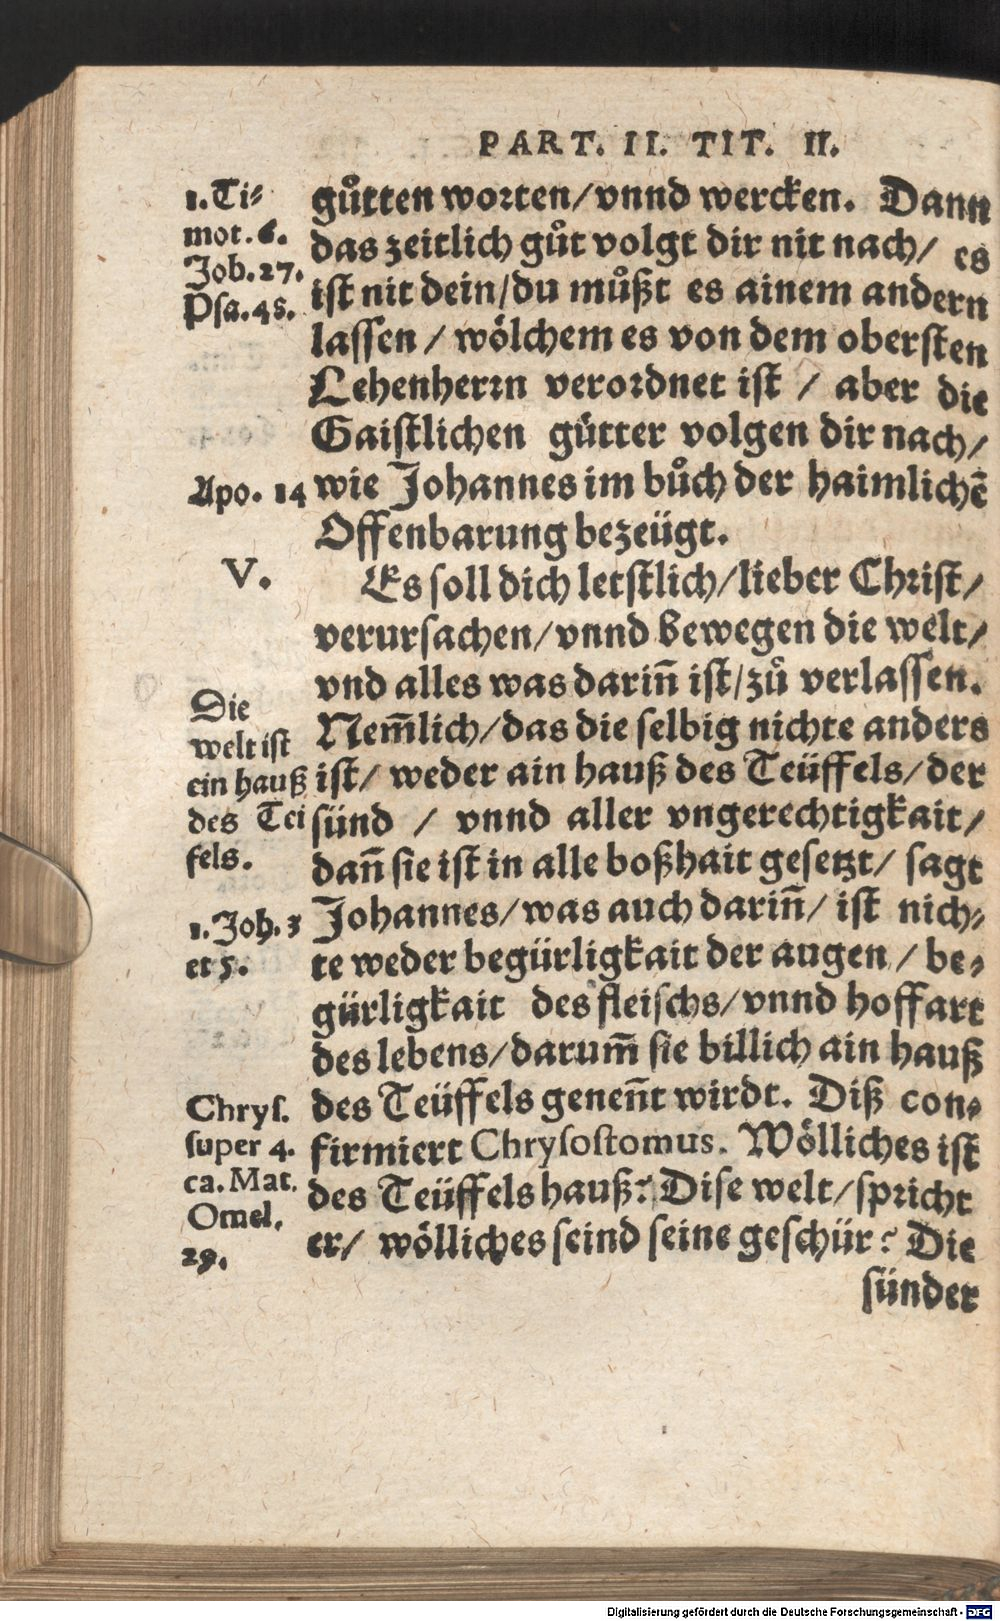 PART. II. TIT. II.
1. Ti-
mot. 6.
Job. 27.
Psa. 48.
guͦtten worten/vnnd wercken. Dann
das zeitlich guͦt volgt dir nit nach/ es
ist nit dein/du muͦßt es ainem andern
lassen / woͤlchem es von dem obersten
Lehenherrn verordnet ist / aber die
Gaistlichen guͤtter volgen dir nach/
Apo. 14
wie Johannes im buͦch der haimlichē
Offenbarung bezeügt.
V.
Es soll dich letstlich/lieber Christ/
verursachen/vnnd bewegen die welt/
vnd alles was darin̄ ist/zuͦ verlassen.
Die
welt ist
ein hauß
des Tei
fels.
Nem̄lich/das die selbig nichte anders
ist/ weder ain hauß des Teüffels/der
sünd / vnnd aller vngerechtigkait/
dan̄ sie ist in alle boßhait gesetzt/ sagt
1. Joh. 3
et 5.
Johannes/was auch darin̄/ ist nich-
te weder begürligkait der augen / be-
gürligkait des fleischs/vnnd hoffart
des lebens/darum̄ sie billich ain hauß
Chrys.
super 4.
ca. Mat.
Omel.
29.
des Teüffels genen̄t wirdt. Diß con-
firmiert Chrysostomus. Woͤlliches ist
des Teüffels hauß? Dise welt/spricht
er/ woͤlliches seind seine geschür? Die
sünder
Digitalisierung gefördert durch die Deutsche Forschungsgemeinschaft - DFG